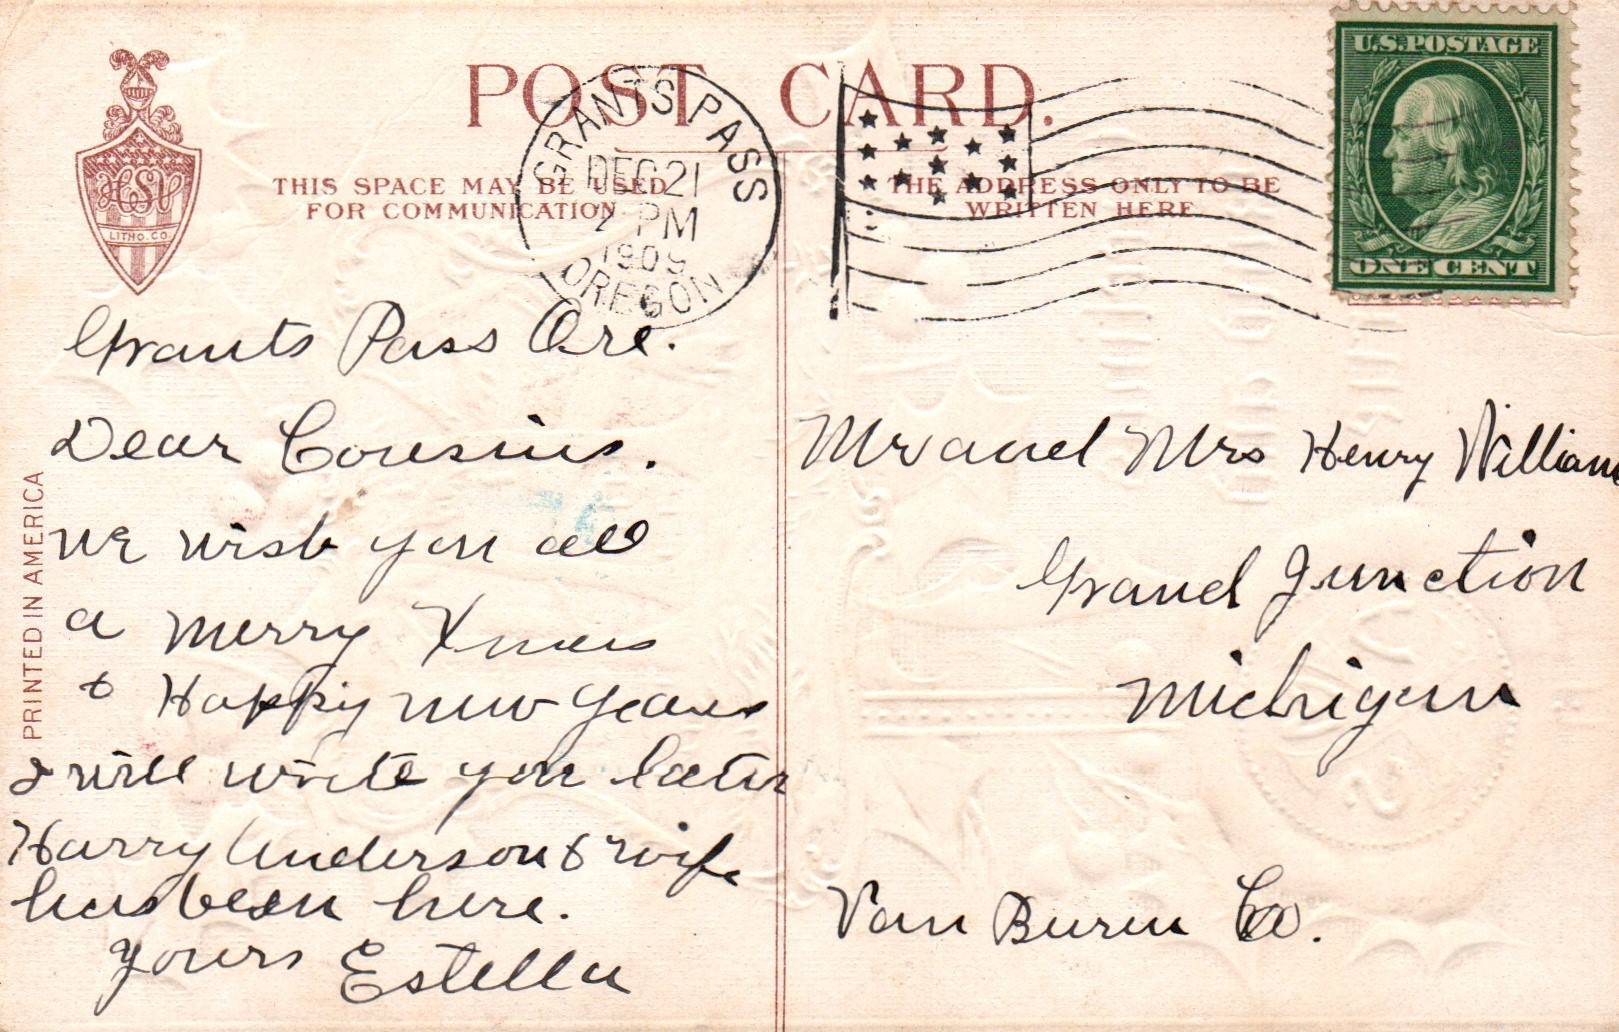 POST CARD.
THIS SPACE MAY BE USED
FOR COMMUNICATION
THE ADDRESS ONLY TO BE
WRITTEN HERE
HSV
LITHO. CO.
PRINTED IN AMERICA
GRANTS PASS
DEC 21
PM
1909
OREGON
U.S. POSTAGE
ONE CENT
Grants Pass Ore.
Dear Cousins.
we wish you all
a merry Xmas
& Happy new years
I will write you later
Harry Anderson & wife
has been here.
yours Estella
Mr and Mrs Henry Williams
Grand Junction
Michigan
Van Buren Co.